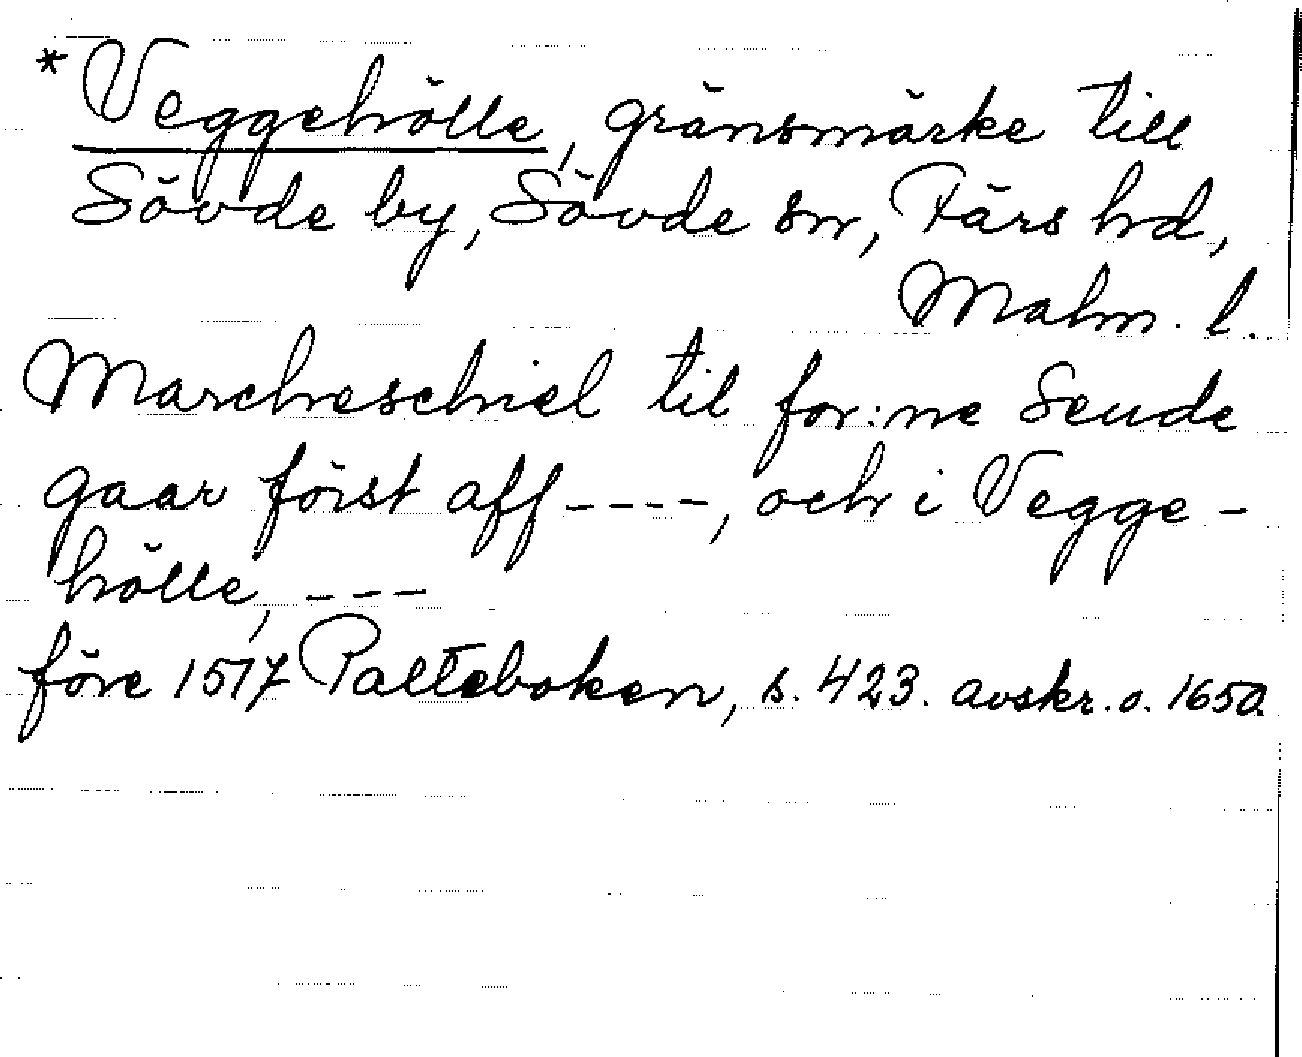 *Veggehölle, gränsmärke till
Sövde by, Sövde sn, Färs hd,
Malm. l.
Marcheschiel til for:ne Seude
gaar föist aff ----, och i Vegge-
hölle, ---
före 1517 Palteboken, s. 423. avskr. o. 1650.